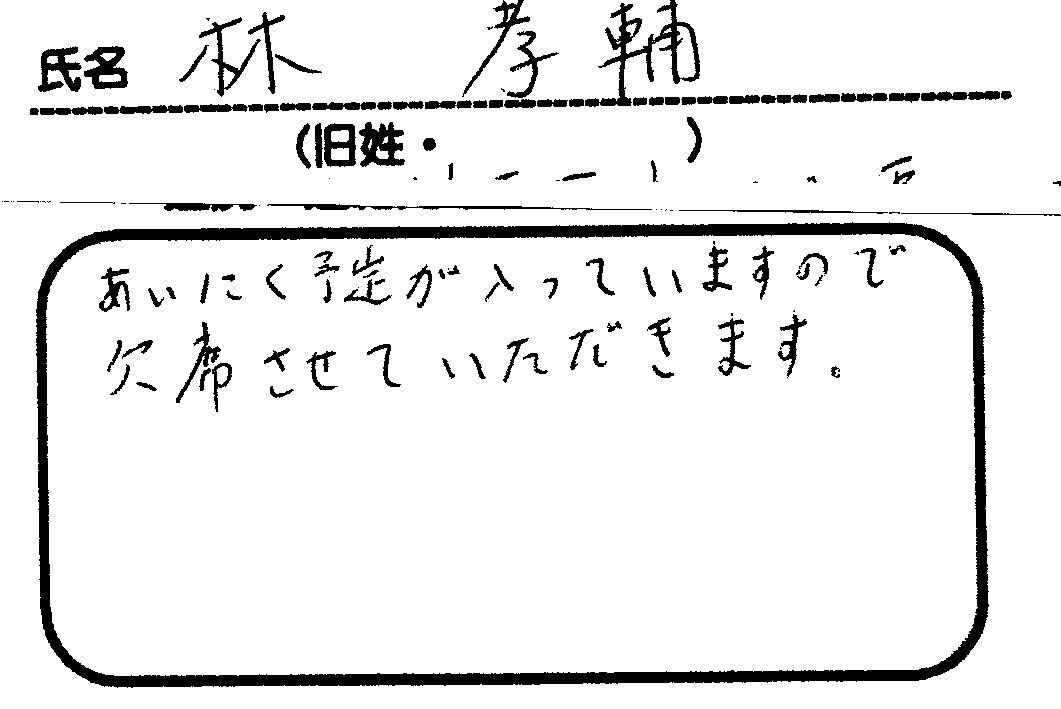 氏名 林 孝輔
(旧姓・ )
あいにく予定が入っていますので
欠席させていただきます。